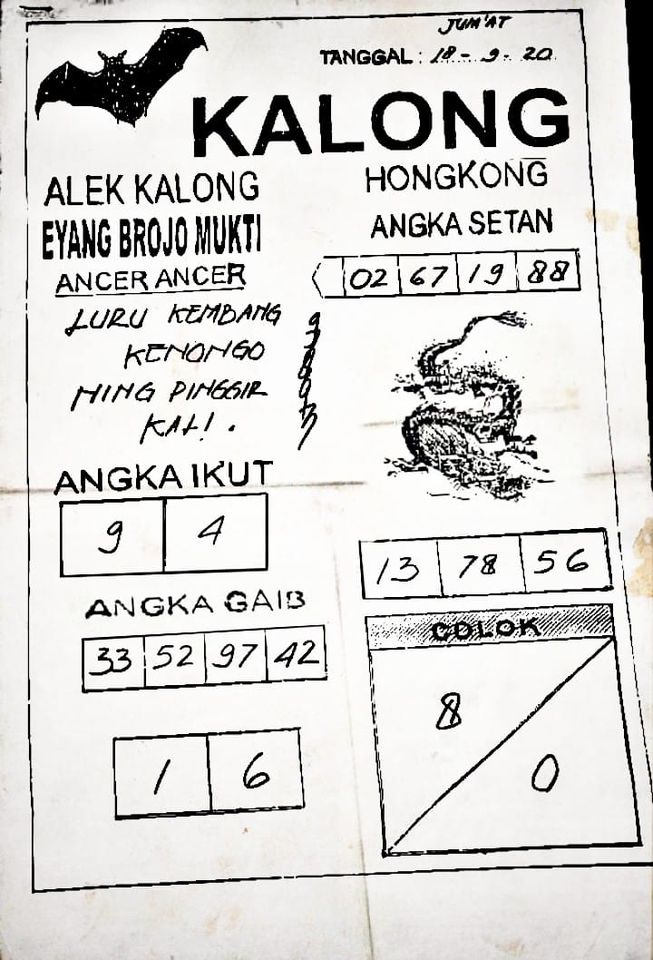 JUM'AT
TANGGAL : 18 - 9 - 20
KALONG
ALEK KALONG
EYANG BROJO MUKTI
ANCER ANCER
LURU KEMBANG
KENONGO
NING PINGGIR
KALI .
ANGKA IKUT
9 4
ANGKA GAIB
33 52 97 42
1 6
HONGKONG
ANGKA SETAN
02 67 19 88
13 78 56
COLOK
8
0